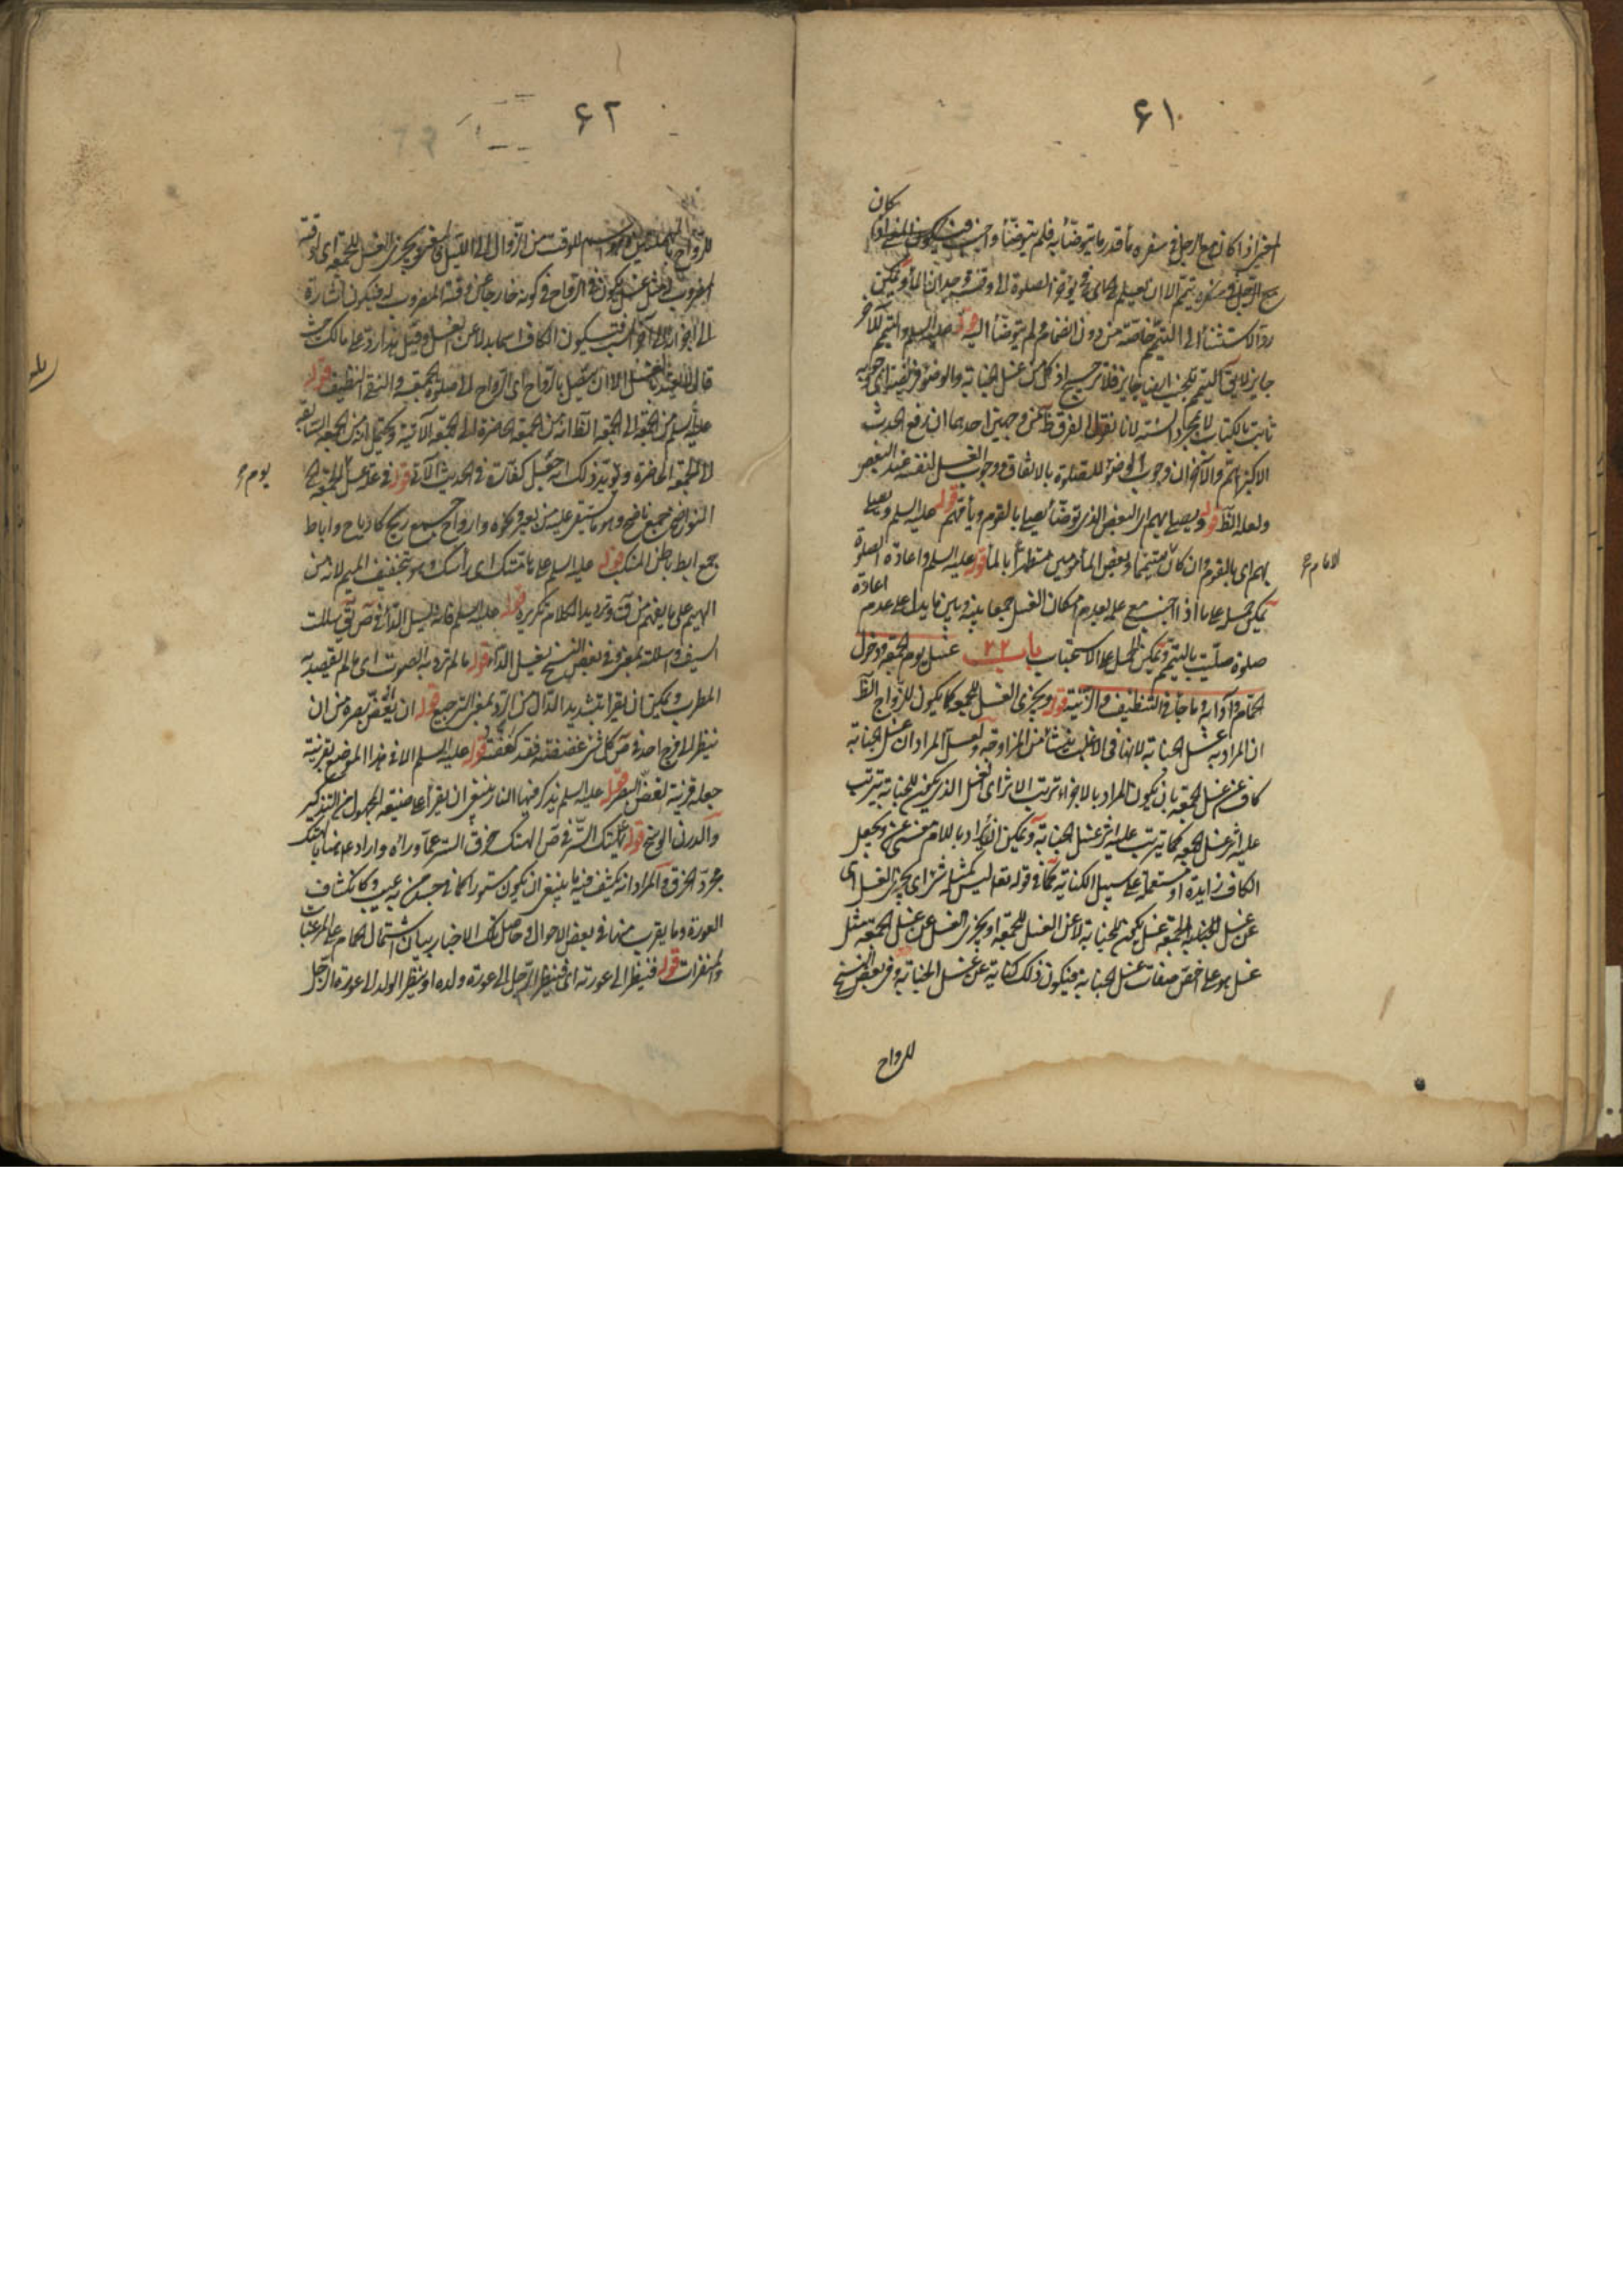 ٦١
كان
اذا كان مع الرجل في سفره ماء قدر ما يتوضأ به فلم يتوضأ واجنب
مع الرجل يتيمم الا ان يعلم الصلوة الى وقت وجدان الماء ويمكن
الى التيمم خاصة من دون انضمام ولم يتوضأ قوله عليه السلم والتيمم للآخر
جايز لا يق التيمم للجنب ايضا جايز فلا ترجيح اذ كل من غسل الجنابة والوضوء فريضة اى وجوبه
ثابت بالكتاب لا بمجرد السنة لانا نقول الفرق من وجهين احدهما ان رفع الحدث
الاكبر اهم والآخر ان وجوب الوضوء للصلوة بالاتفاق ووجوب الغسل لنفسه عند البعض
ولعله الظ قوله ويصلى بهم اى البعض الذى توضأ يصلى بالقوم ويأمهم قوله عليه السلم ويصلى
بهم اى بالقوم وان كان متيمما وبعض المأمومين متطهرا بالماء قوله عليه السلم واعادة الصلوة
الامام ع
يمكن حمله على ما اذا اجنب مع علمه بعدم امكان الغسل جمعا بينه وبين ما يدل على عدم اعادة
صلوة صليت بالتيمم ويمكن الحمل على الاستحباب باب ٢٢ غسل يوم الجمعة ودخول
الحمام وآدابه وما جاء في التنظيف والزينة قوله ويجزى الغسل للجمعة كما يكون للزواج الظ
ان المراد به غسل الجنابة لانها في الاغلب ينشأ من المزاوجة ولعل المراد ان غسل الجنابة
كاف عن غسل الجمعة بان يكون المراد بالاجزاء ترتب الاثر اى الغسل الذى يكون للجنابة يترتب
عليه اثر غسل الجمعة كما يترتب عليه اثر غسل الجنابة ويمكن ان يراد باللام معنى عن ويجعل
الكاف زايدة او مستعملة على سبيل الكناية كما في قوله تعا ليس كمثله شئ اى يجزى الغسل اى
عن غسل الجمعة غسل يكون للجنابة لا عن الغسل للجمعة او يجزى الغسل عن غسل الجمعة مثل
غسل هو على اخص صفات غسل الجنابة فيكون ذلك كناية عن غسل الجنابة وفي بعض النسخ
للرواح
٦٢
للرواح اسم للوقت من الزوال الى الليل يجزى الغسل للجمعة اى لوقته
المضروب له مثل غسل يكون في الرواح في كونه خارجا عن وقته المضروب له فيكون اشارة
فيكون الكاف اسما بدلا عن الغسل وقيل هذا رد على مالك حيث
قال لا يعتد بالغسل الا ان يتصل بالرواح اى الرواح الى صلوة الجمعة والنقى النظيف قوله
عليه السلم من الجمعة الى الجمعة الظ انه من الجمعة الحاضرة الى الجمعة الآتية ويحتمل ان من الجمعة السابقة
الى الجمعة الحاضرة ويؤيد ذلك انه جعل كفارة في الحديث الآتى قوله في علة غسل الجمعة
يوم ع
النواضح جمع ناضح وهو ما يستقى عليه من بعير ونحوه وارواح جمع ريح كارياح واباط
جمع ابط باطن المنكب قوله عليه السلم على هامتك اى رأسك وهو بتخفيف الميم لانه من
الهيم على ما يفهم من ق وترديد الكلام تكريره قوله عليه السلم فانه يسل الداء في ص ق سللت
السيف واسللته بمعنى وفي بعض النسخ يغسل الداء قوله ما لم ترد به الصوت اى ما لم يقصد به
المطرب ويمكن ان يقرأ بتشديد الدال من الرد بمعنى الترجيع قوله ان يغض بصره من ان
ينظر الى فرج احد في ص كل شئ غضضته فقد كففته قوله عليه السلم الا في هذا الموضع بقرينة
جعله قرينة لغض البصر قوله عليه السلم يذكر فيها النار ينبغى ان يقرأ على صيغة المجهول من التذكير
والدرن الوسخ قوله يهتك الستر في ص الهتك خرق الستر عما وراءه واراد ههنا بالهتك
مجرد الخرق والمراد انه يكشف فيه ما ينبغى ان يكون مستورا كما في جسده من عيب وكانكشاف
العورة وما يقرب منها في بعض الاحوال وحاصل تلك الاخبار بيان اشتمال الحمام على المرغبات
والمنفرات قوله فينظر الى عورته اى فينظر الرجل الى عورة ولده او ينظر الولد الى عورة الرجل